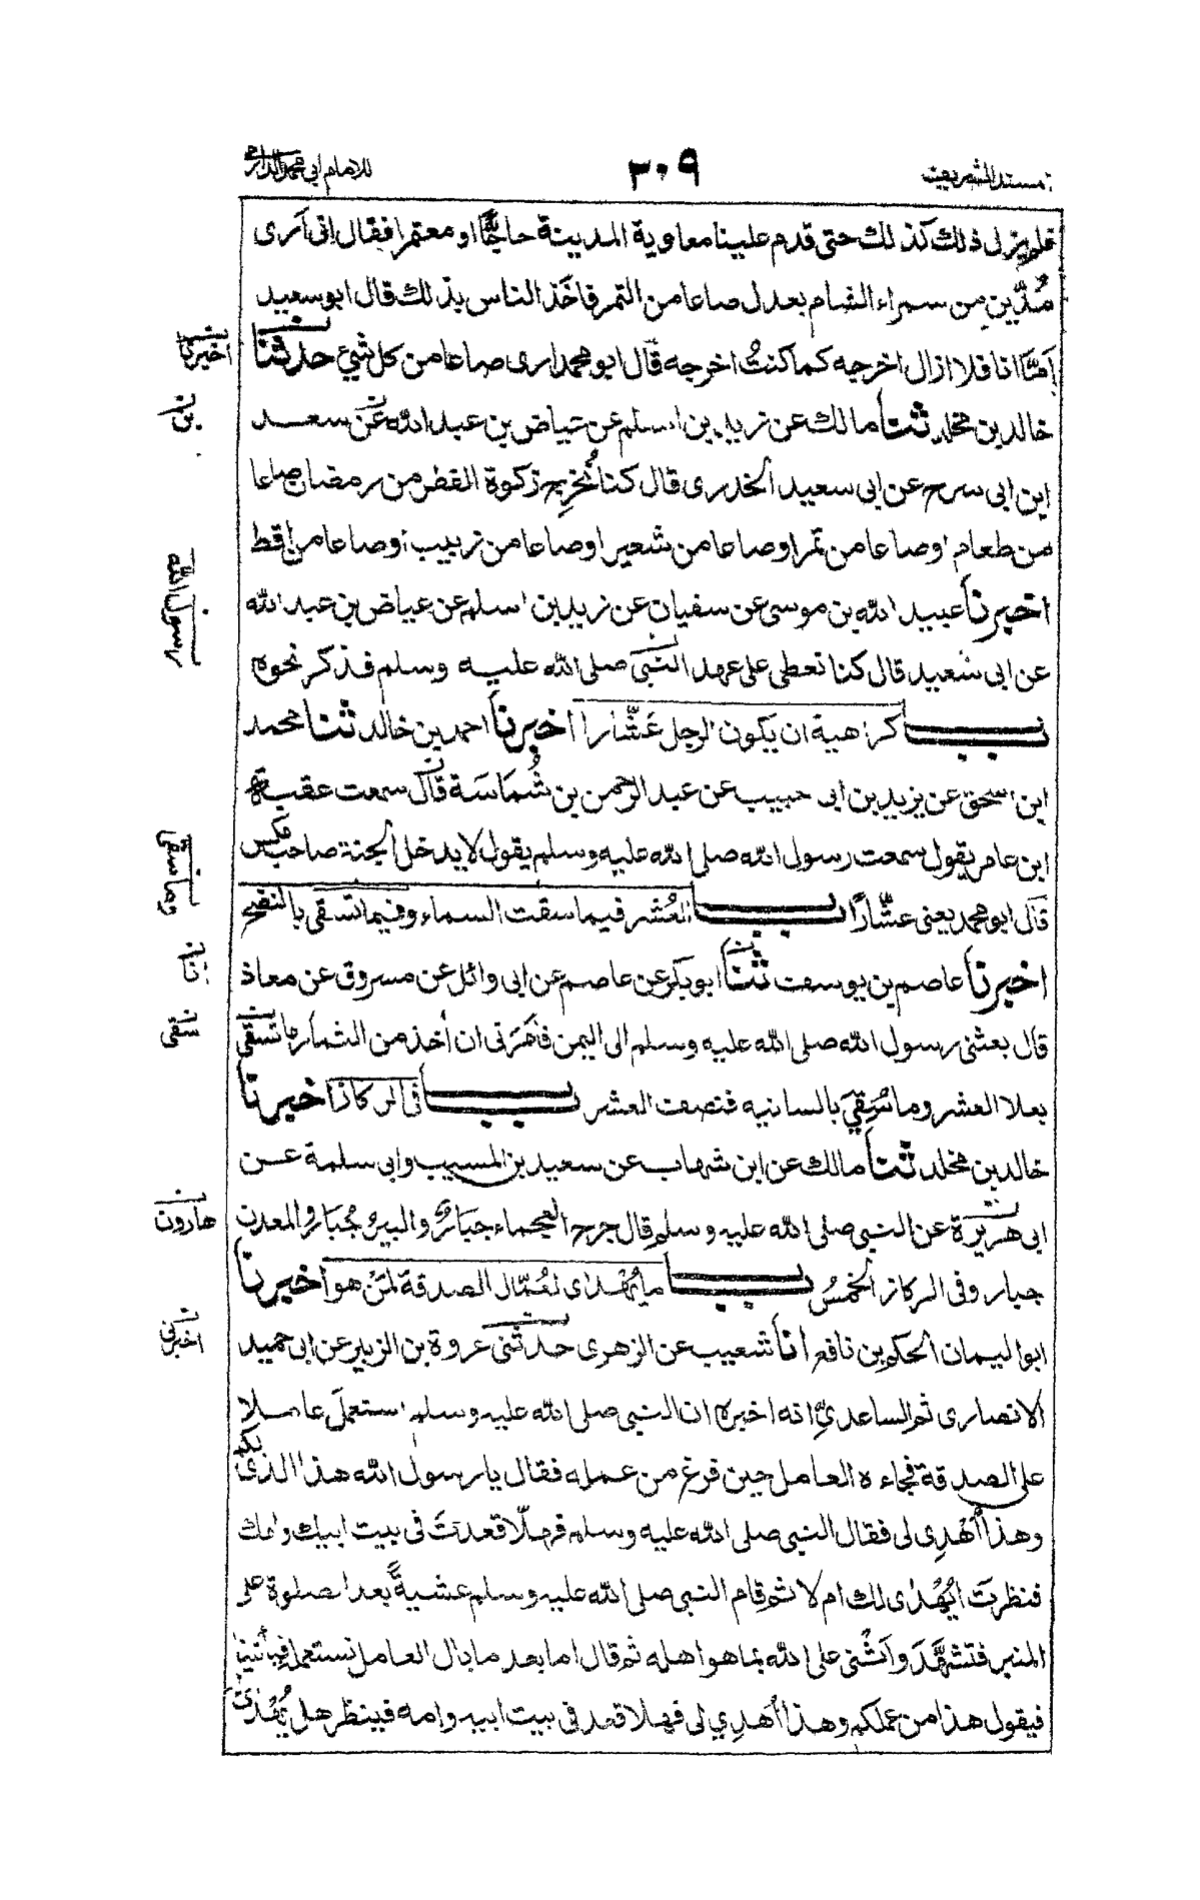 مسند الشريف
٣٠٩
للامام ابي محمد الدارمي
فلم يزل ذلك كذلك حتى قدم علينا معاوية المدينة حاجًّا او معتمرا فقال انى أرى
مُدَّين من سمراء الشام يعدل صاعا من التمر فاخذ الناس بذلك قال ابو سعيد
اَمَّا انا فلا ازال اخرجه كما كنتُ اخرجه قال ابو محمد ارى صاعا من كل شيئ حدثنا
خالد بن مخلد ثنا مالك عن زيد بن اسلم عن عياض بن عبد الله عن سعد
ابن ابى سرح عن ابى سعيد الخدرى قال كنا نُخرِج زكوة الفطر من رمضان صاعا
من طعام او صاعا من تمر او صاعا من شعير او صاعا من زبيب او صاعا من اقط
اخبرنا عبيد الله بن موسى عن سفيان عن زيد بن اسلم عن عياض بن عبد الله
عن ابى سعيد قال كنا نعطى على عهد النبى صلى الله عليه وسلم فذكر نحوه
باب كراهية ان يكون الرجل عَشَّارا اخبرنا احمد بن خالد ثنا محمد
ابن اسحق عن يزيد بن ابى حبيب عن عبد الرحمن بن شُمَاسَة قال سمعت عقبة
ابن عامر يقول سمعت رسول الله صلى الله عليه وسلم يقول لا يدخل الجنة صاحب مكس
قال ابو محمد يعنى عشّارًا باب العُشر فيما سقت السماء وفيما تسقى بالنضح
اخبرنا عاصم بن يوسف ثنا ابو بكر عن عاصم عن ابى وائل عن مسروق عن معاذ
قال بعثنى رسول الله صلى الله عليه وسلم الى اليمن فأمَرَنى ان أخذ من الثمار ما تسقى
بعلا العشر وما سُقِيَ بالسانيه فنصف العشر باب فى الركاز اخبرنا
خالد بن مخلد ثنا مالك عن ابن شهاب عن سعيد بن المسيب وابى سلمة عن
ابى هريرة عن النبى صلى الله عليه وسلم قال جرح العجماء جبارٌ والبير جُبار والمعدن
جبار وفى الركاز الخمسُ باب ما يُهْدٰى لعُمّال الصدقة لمَنْ هو اخبرنا
ابو اليمان الحكم بن نافع انا شعيب عن الزهرى حدثنى عروة بن الزبير عن ابى حميد
الانصارى ثم الساعديّ انه اخبره ان النبى صلى الله عليه وسلم استعملَ عاملا
على الصدقة فجاءه العامل حين فرغ من عمله فقال يا رسول الله هذا الذى لكم
وهذا أُهْدِى لى فقال النبى صلى الله عليه وسلم فهلّا قعدتَ فى بيت ابيك وامك
فنظرتَ ايُهْدٰى لك ام لا ثم قام النبى صلى الله عليه وسلم عشيةً بعد الصلوة على
المنبر فتشهَّدَ وأثنى على الله بما هو اهله ثم قال اما بعد ما بال العامل نستعمله فيأتينا
فيقول هذا من عملكم وهذا أُهدِي لى فهلا قعد فى بيت ابيه وامه فينظر هل يُهْدٰى
اخبرنا
بن
رسول الله
وما سقى
ثنا
سقى
هارون
اخبرنى